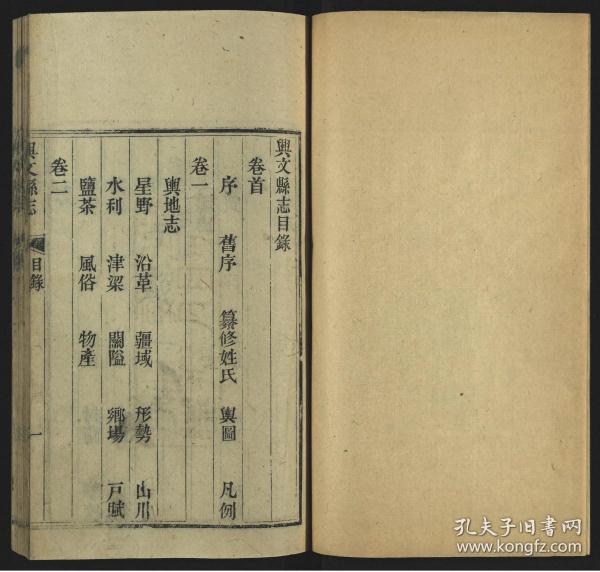 興文縣志目錄
卷首
序 舊序 纂修姓氏 輿圖 凡例
卷一
輿地志
星野 沿革 疆域 形勢 山川
水利 津梁 關隘 鄉場 戶賦
鹽茶 風俗 物產
卷二
興文縣志 目錄 一
孔夫子旧书网
www.kongfz.com